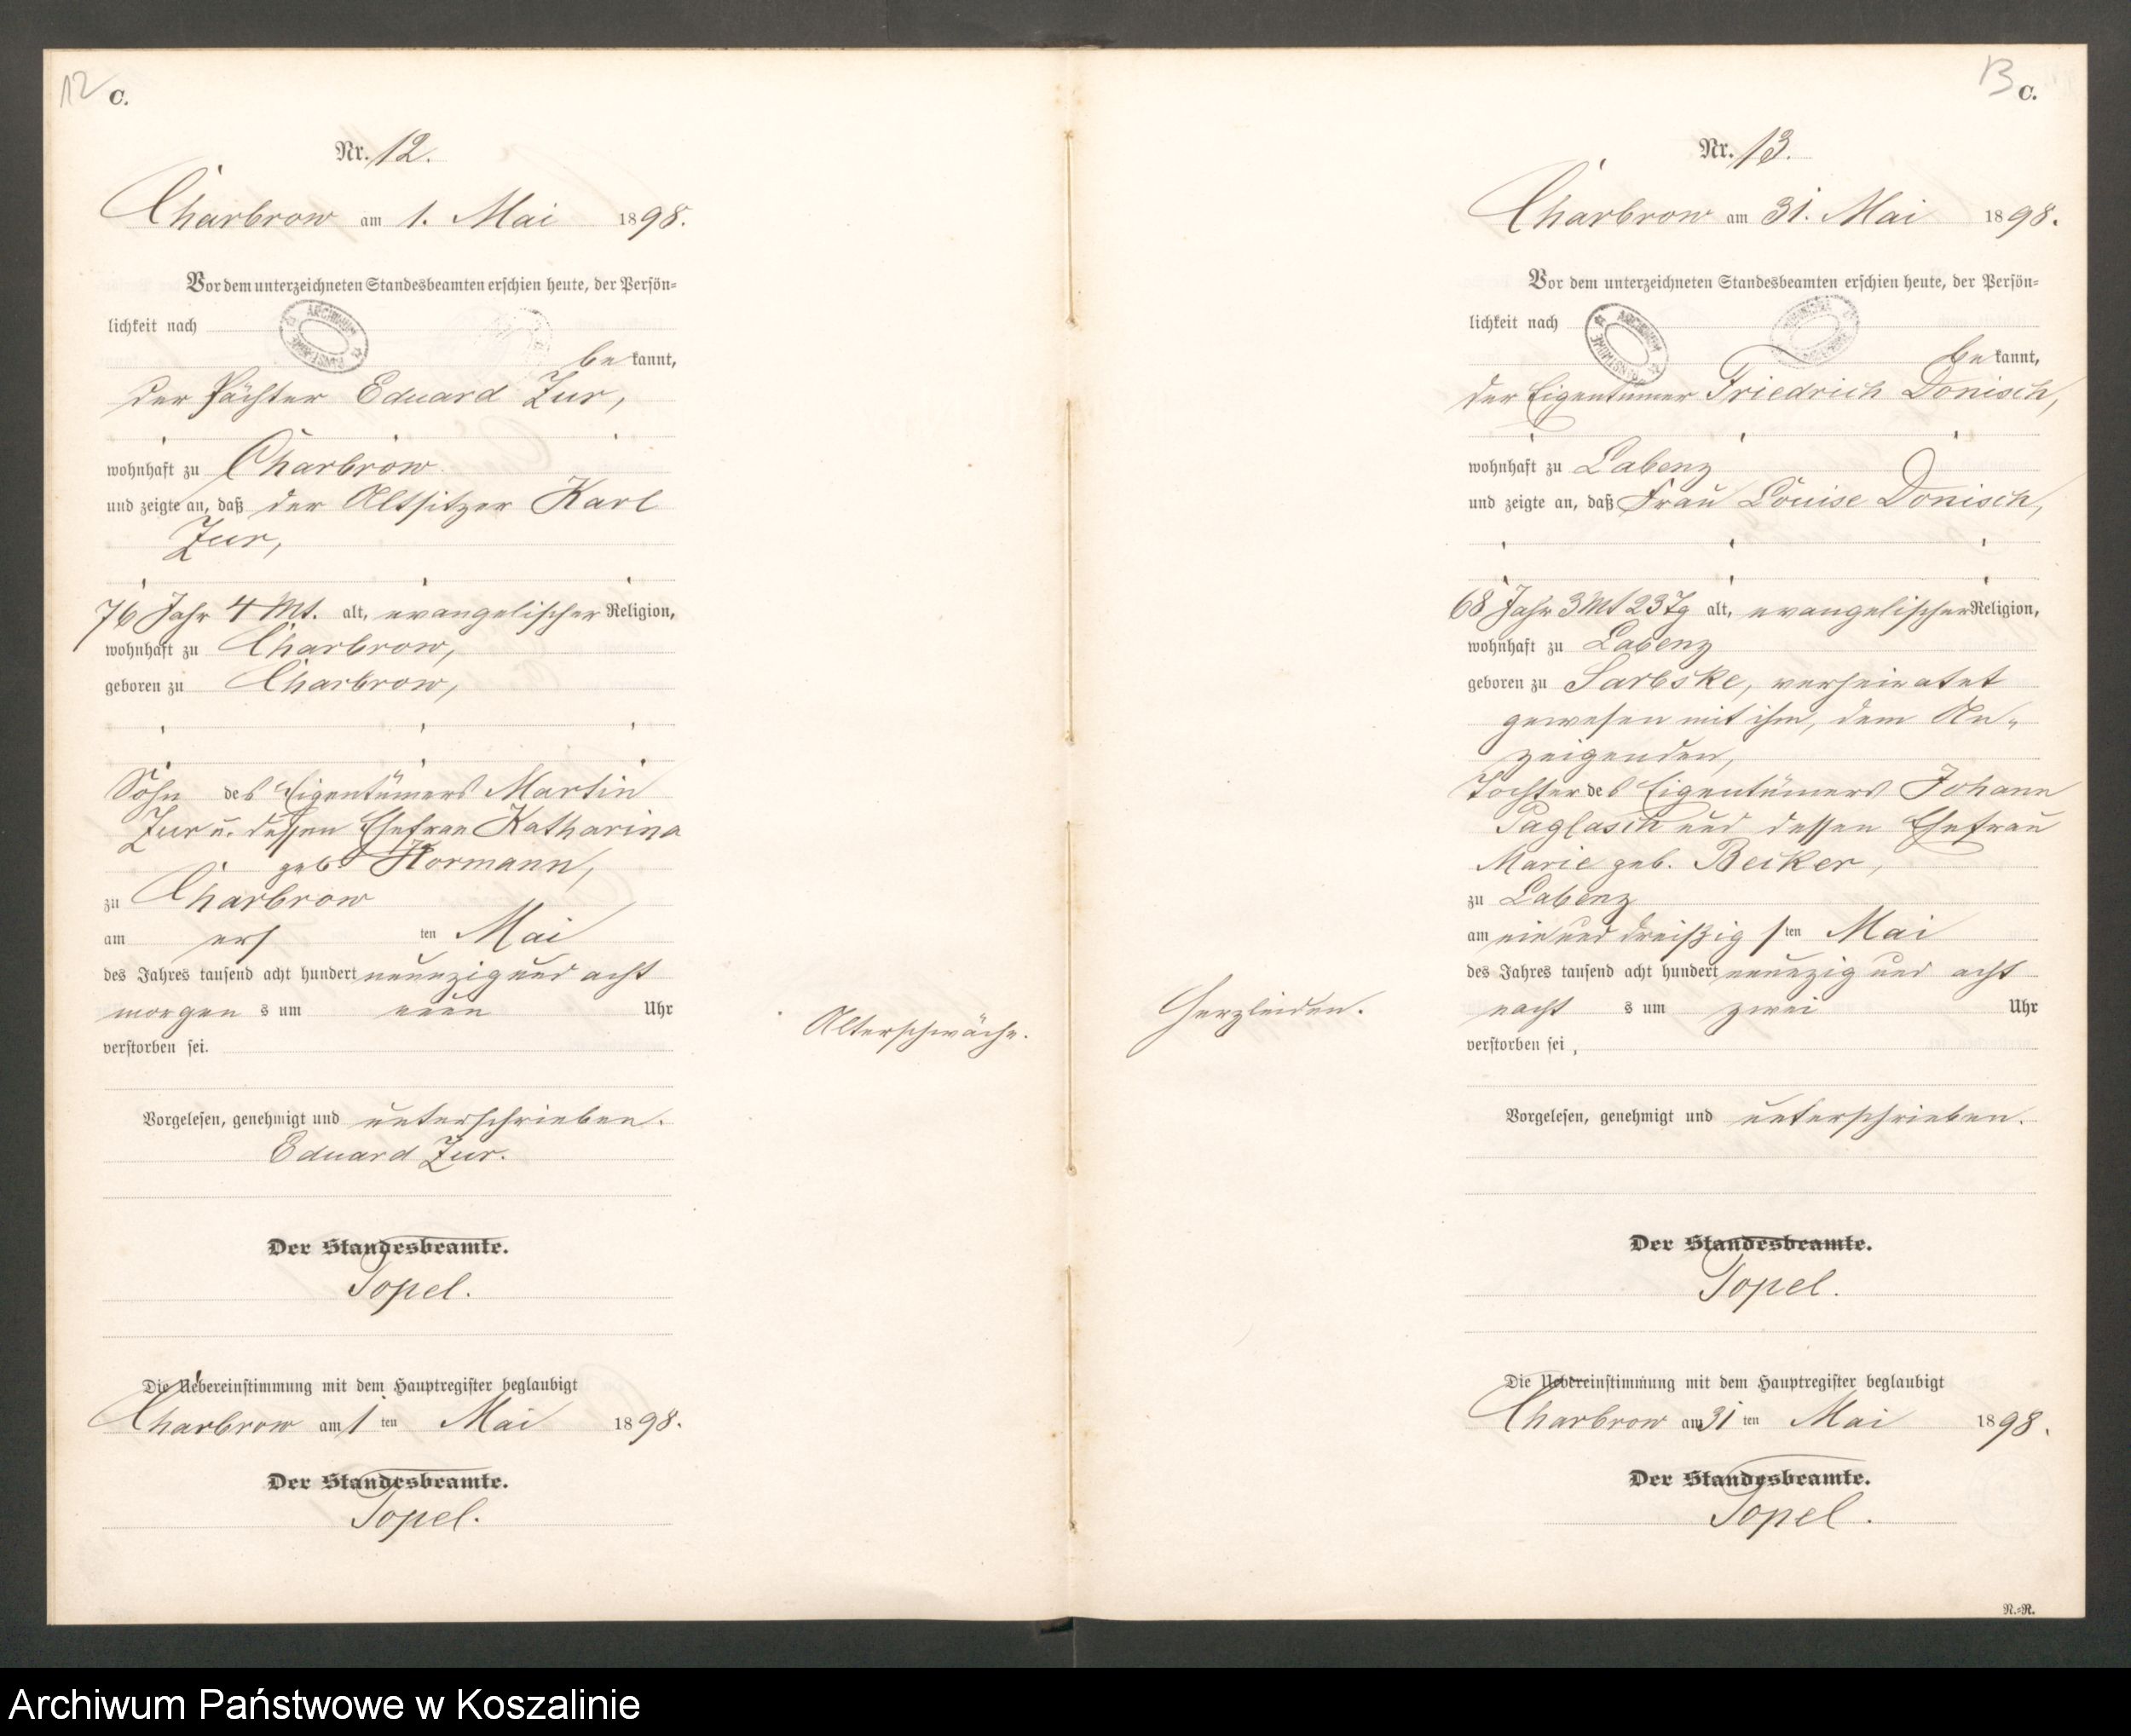 12
C.
Nr. 12.
Charbrow am 1. Mai 1898.
Vor dem unterzeichneten Standesbeamten erschien heute, der Persön=
lichkeit nach
be kannt,
der Pächter Eduard Zur,
wohnhaft zu Charbrow
und zeigte an, daß der Altsitzer Karl
Zur,
76 Jahr 4 Mt. alt, evangelischer Religion,
wohnhaft zu Charbrow,
geboren zu Charbrow,
Sohn des Eigentümers Martin
Zur u. dessen Ehefrau Katharina
geb. Hormann,
zu Charbrow
am ers ten Mai
des Jahres tausend acht hundert neunzig und acht
morgen s um neun Uhr
verstorben sei.
Alterschwäche.
Vorgelesen, genehmigt und unterschrieben.
Eduard Zur.
Der Standesbeamte.
Topel.
Die Uebereinstimmung mit dem Hauptregister beglaubigt
Charbrow am 1 ten Mai 1898.
Der Standesbeamte.
Topel.
13
C.
Nr. 13.
Charbrow am 31. Mai 1898.
Vor dem unterzeichneten Standesbeamten erschien heute, der Persön=
lichkeit nach
be kannt,
der Eigentümer Friedrich Donisch,
wohnhaft zu Labenz
und zeigte an, daß Frau Louise Donisch,
68 Jahr 3 Mt 23 Tg alt, evangelischer Religion,
wohnhaft zu Labenz
geboren zu Sarbske, verheiratet
gewesen mit ihm, dem An=
zeigenden,
Tochter des Eigentümers Johann
Paglasch und dessen Ehefrau
Marie geb. Becker,
zu Labenz
am einund dreißig sten Mai
des Jahres tausend acht hundert neunzig und acht
nacht s um zwei Uhr
verstorben sei,
Herzleiden.
Vorgelesen, genehmigt und unterschrieben.
Der Standesbeamte.
Topel.
Die Uebereinstimmung mit dem Hauptregister beglaubigt
Charbrow am 31 ten Mai 1898.
Der Standesbeamte.
Topel.
N.=R.
Archiwum Państwowe w Koszalinie